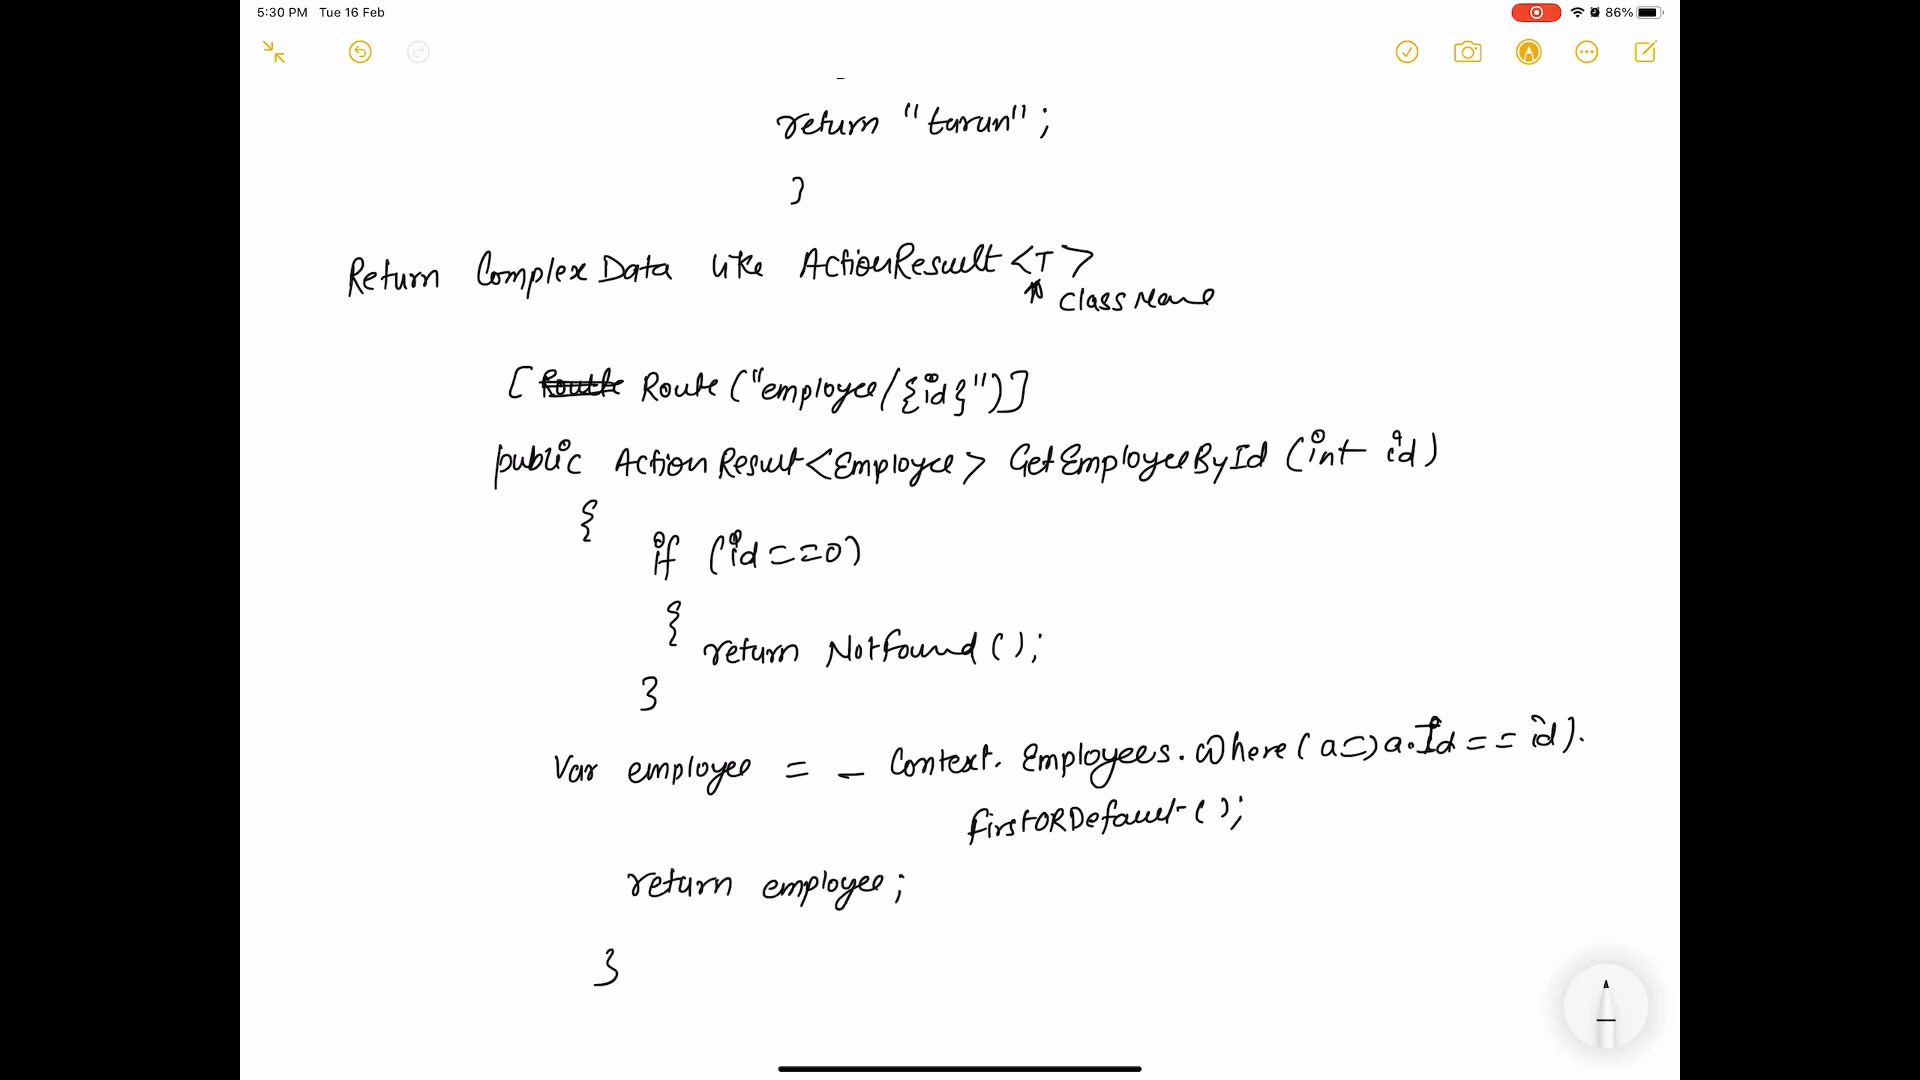 5:30 PM Tue 16 Feb 86%
return "tarun";
}
Return Complex Data like ActionResult <T>
Class Name
[ Route ("employee/{id}")]
public ActionResult<Employee> GetEmployeeById (int id)
{
if (id==0)
{
return NotFound ();
}
Var employee = _ Context. Employees. Where (a=>a.Id == id).
firstORDefault ();
return employee;
}